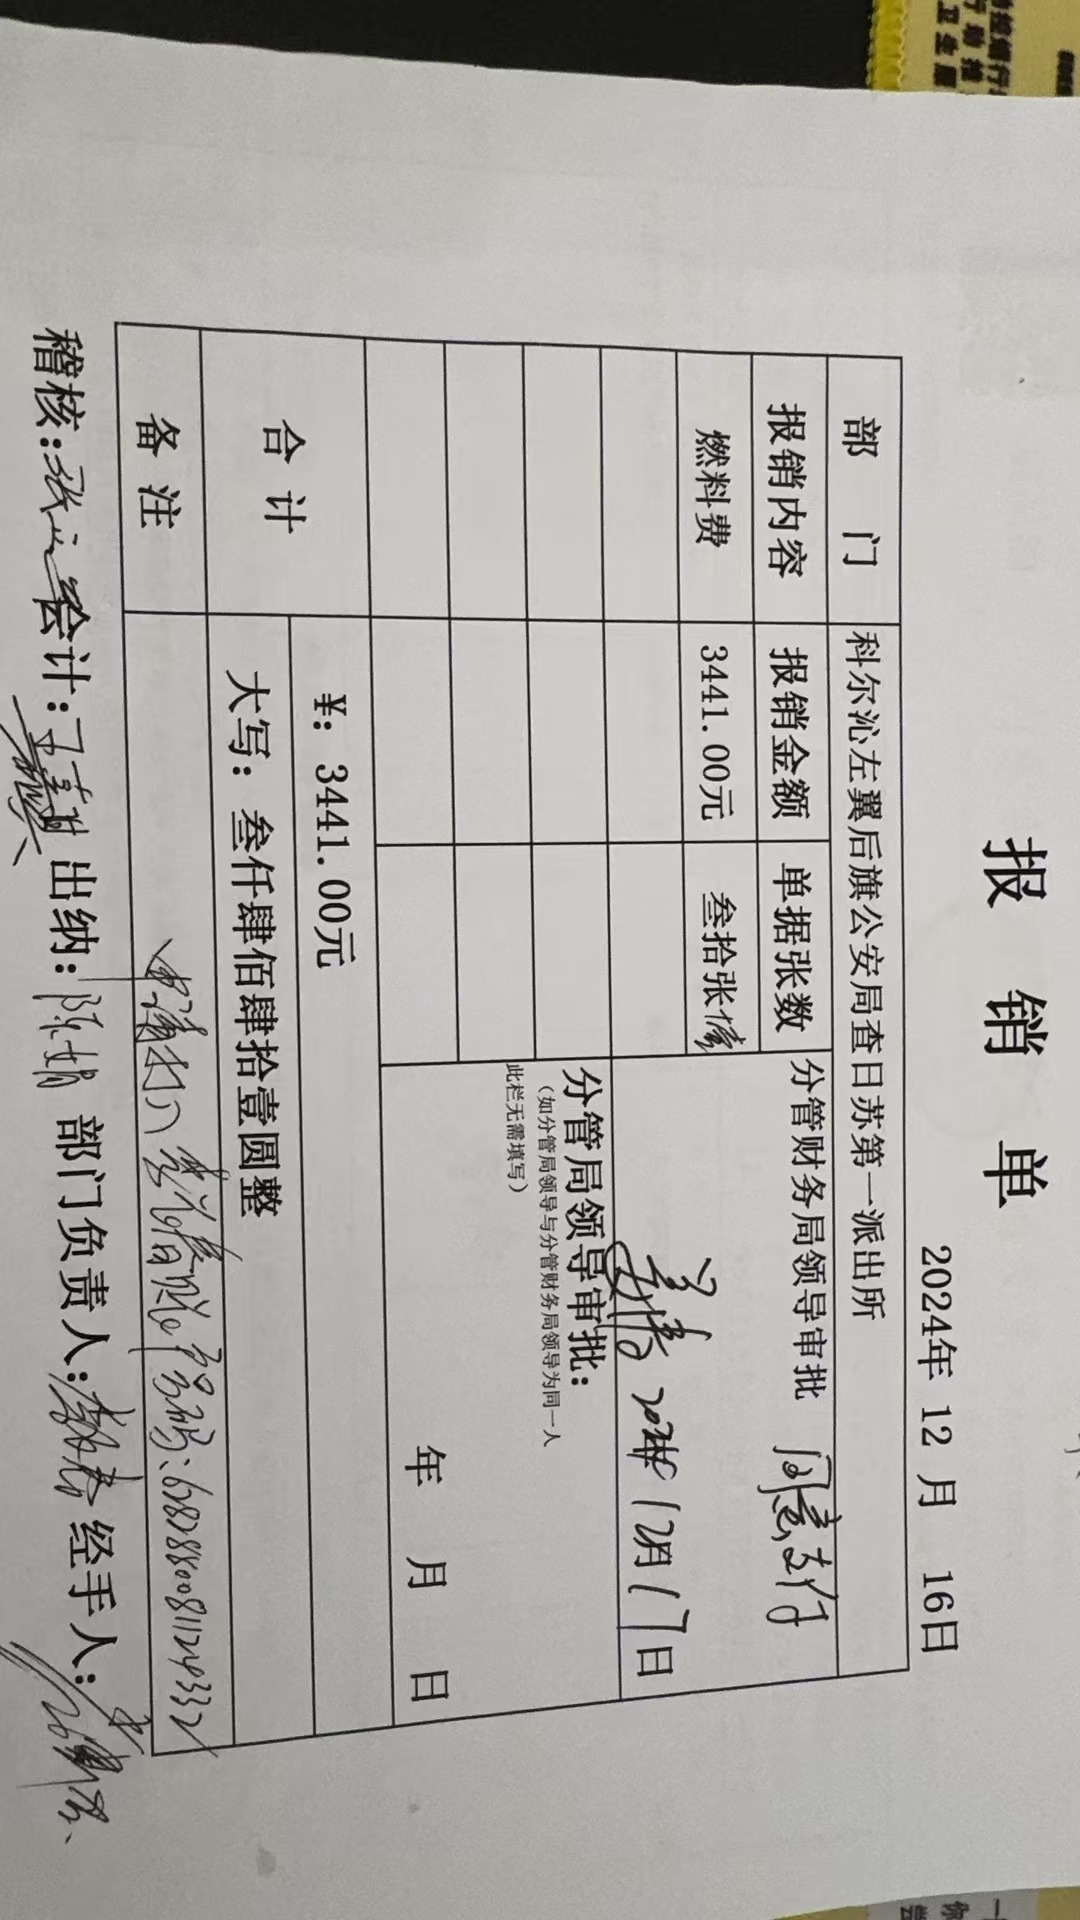 报销单
2024年 12 月 16日
部门 科尔沁左翼后旗公安局查日苏第一派出所
报销内容 报销金额 单据张数 分管财务局领导审批 同意支付
燃料费 3441.00元 叁拾张
2024年12月17日
分管局领导审批：
（如分管局领导与分管财务局领导为同一人
此栏无需填写）
年 月 日
合计 ¥: 3441.00元
大写： 叁仟肆佰肆拾壹圆整
备注
稽核： 会计： 出纳：陈娟 部门负责人： 经手人：